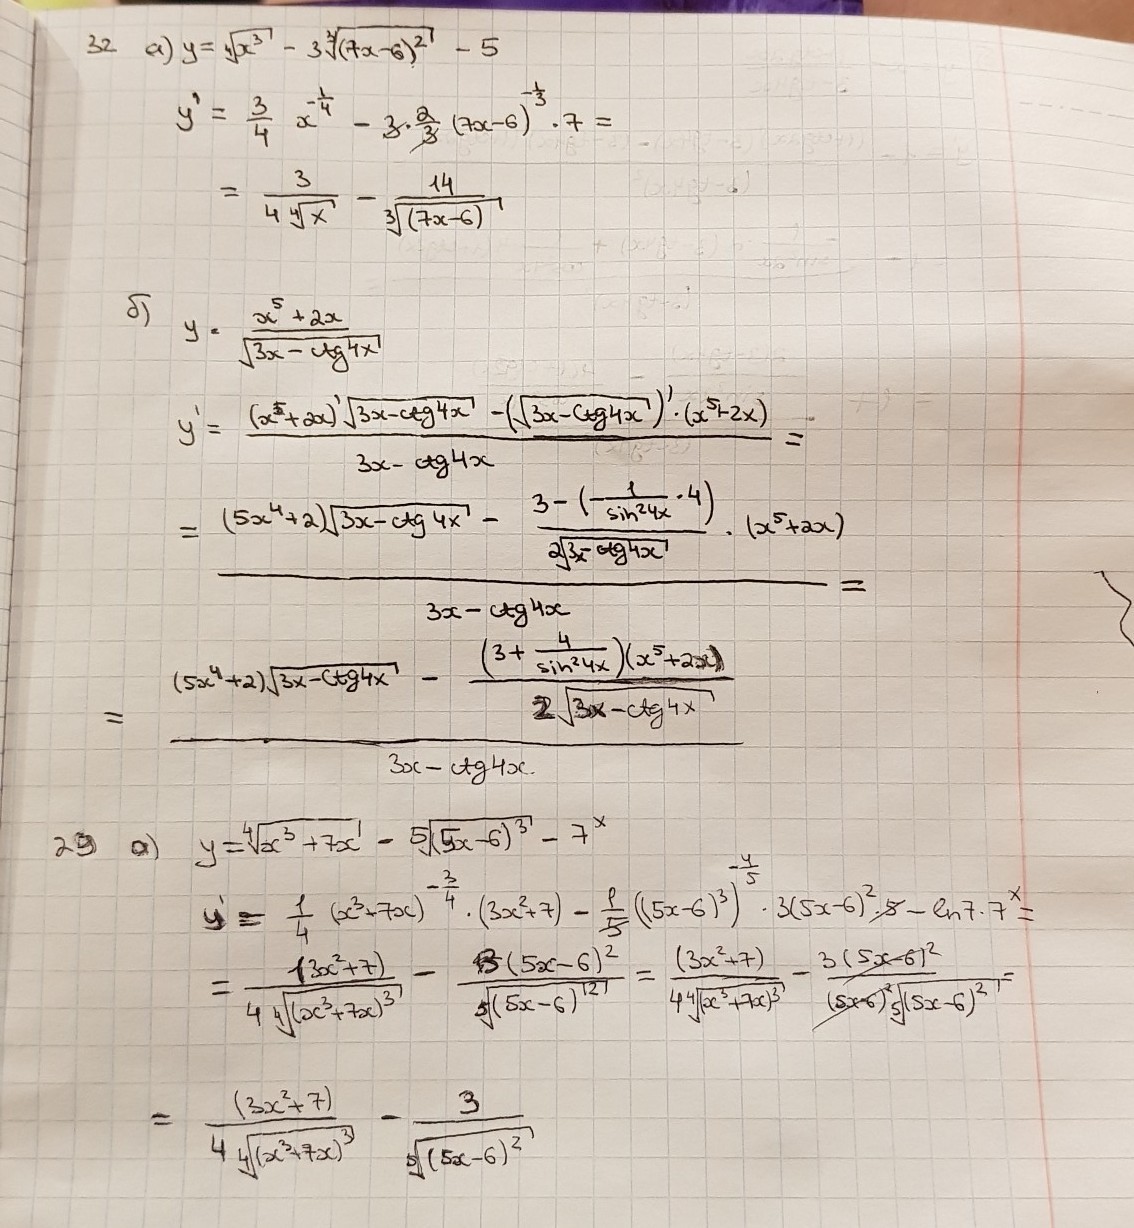 32 а) y = ∜x³ - 3∛(7x-6)² - 5
y' = 3/4 x^(-1/4) - 3·2/3 (7x-6)^(-1/3) · 7 =
= 3/(4∜x) - 14/∛(7x-6)
б) y = (x⁵+2x)/√(3x-ctg4x)
y' = ((x⁵+2x)'√(3x-ctg4x) - (√(3x-ctg4x))'·(x⁵+2x))/(3x-ctg4x) =
= ((5x⁴+2)√(3x-ctg4x) - (3-(-1/sin²4x · 4))/(2√(3x-ctg4x)) · (x⁵+2x))/(3x-ctg4x) =
= ((5x⁴+2)√(3x-ctg4x) - ((3+4/sin²4x)(x⁵+2x))/(2√(3x-ctg4x)))/(3x-ctg4x)
29 а) y = ∜(x³+7x) - ⁵√(5x-6)³ - 7^x
y' = 1/4 (x³+7x)^(-3/4) · (3x²+7) - 1/5 ((5x-6)³)^(-4/5) · 3(5x-6)²·5 - ln7·7^x =
= (3x²+7)/(4∜(x³+7x)³) - 3(5x-6)²/⁵√(5x-6)¹² = (3x²+7)/(4∜(x³+7x)³) - 3(5x-6)²/((5x-6)² ⁵√(5x-6)²) =
= (3x²+7)/(4∜(x³+7x)³) - 3/⁵√(5x-6)²